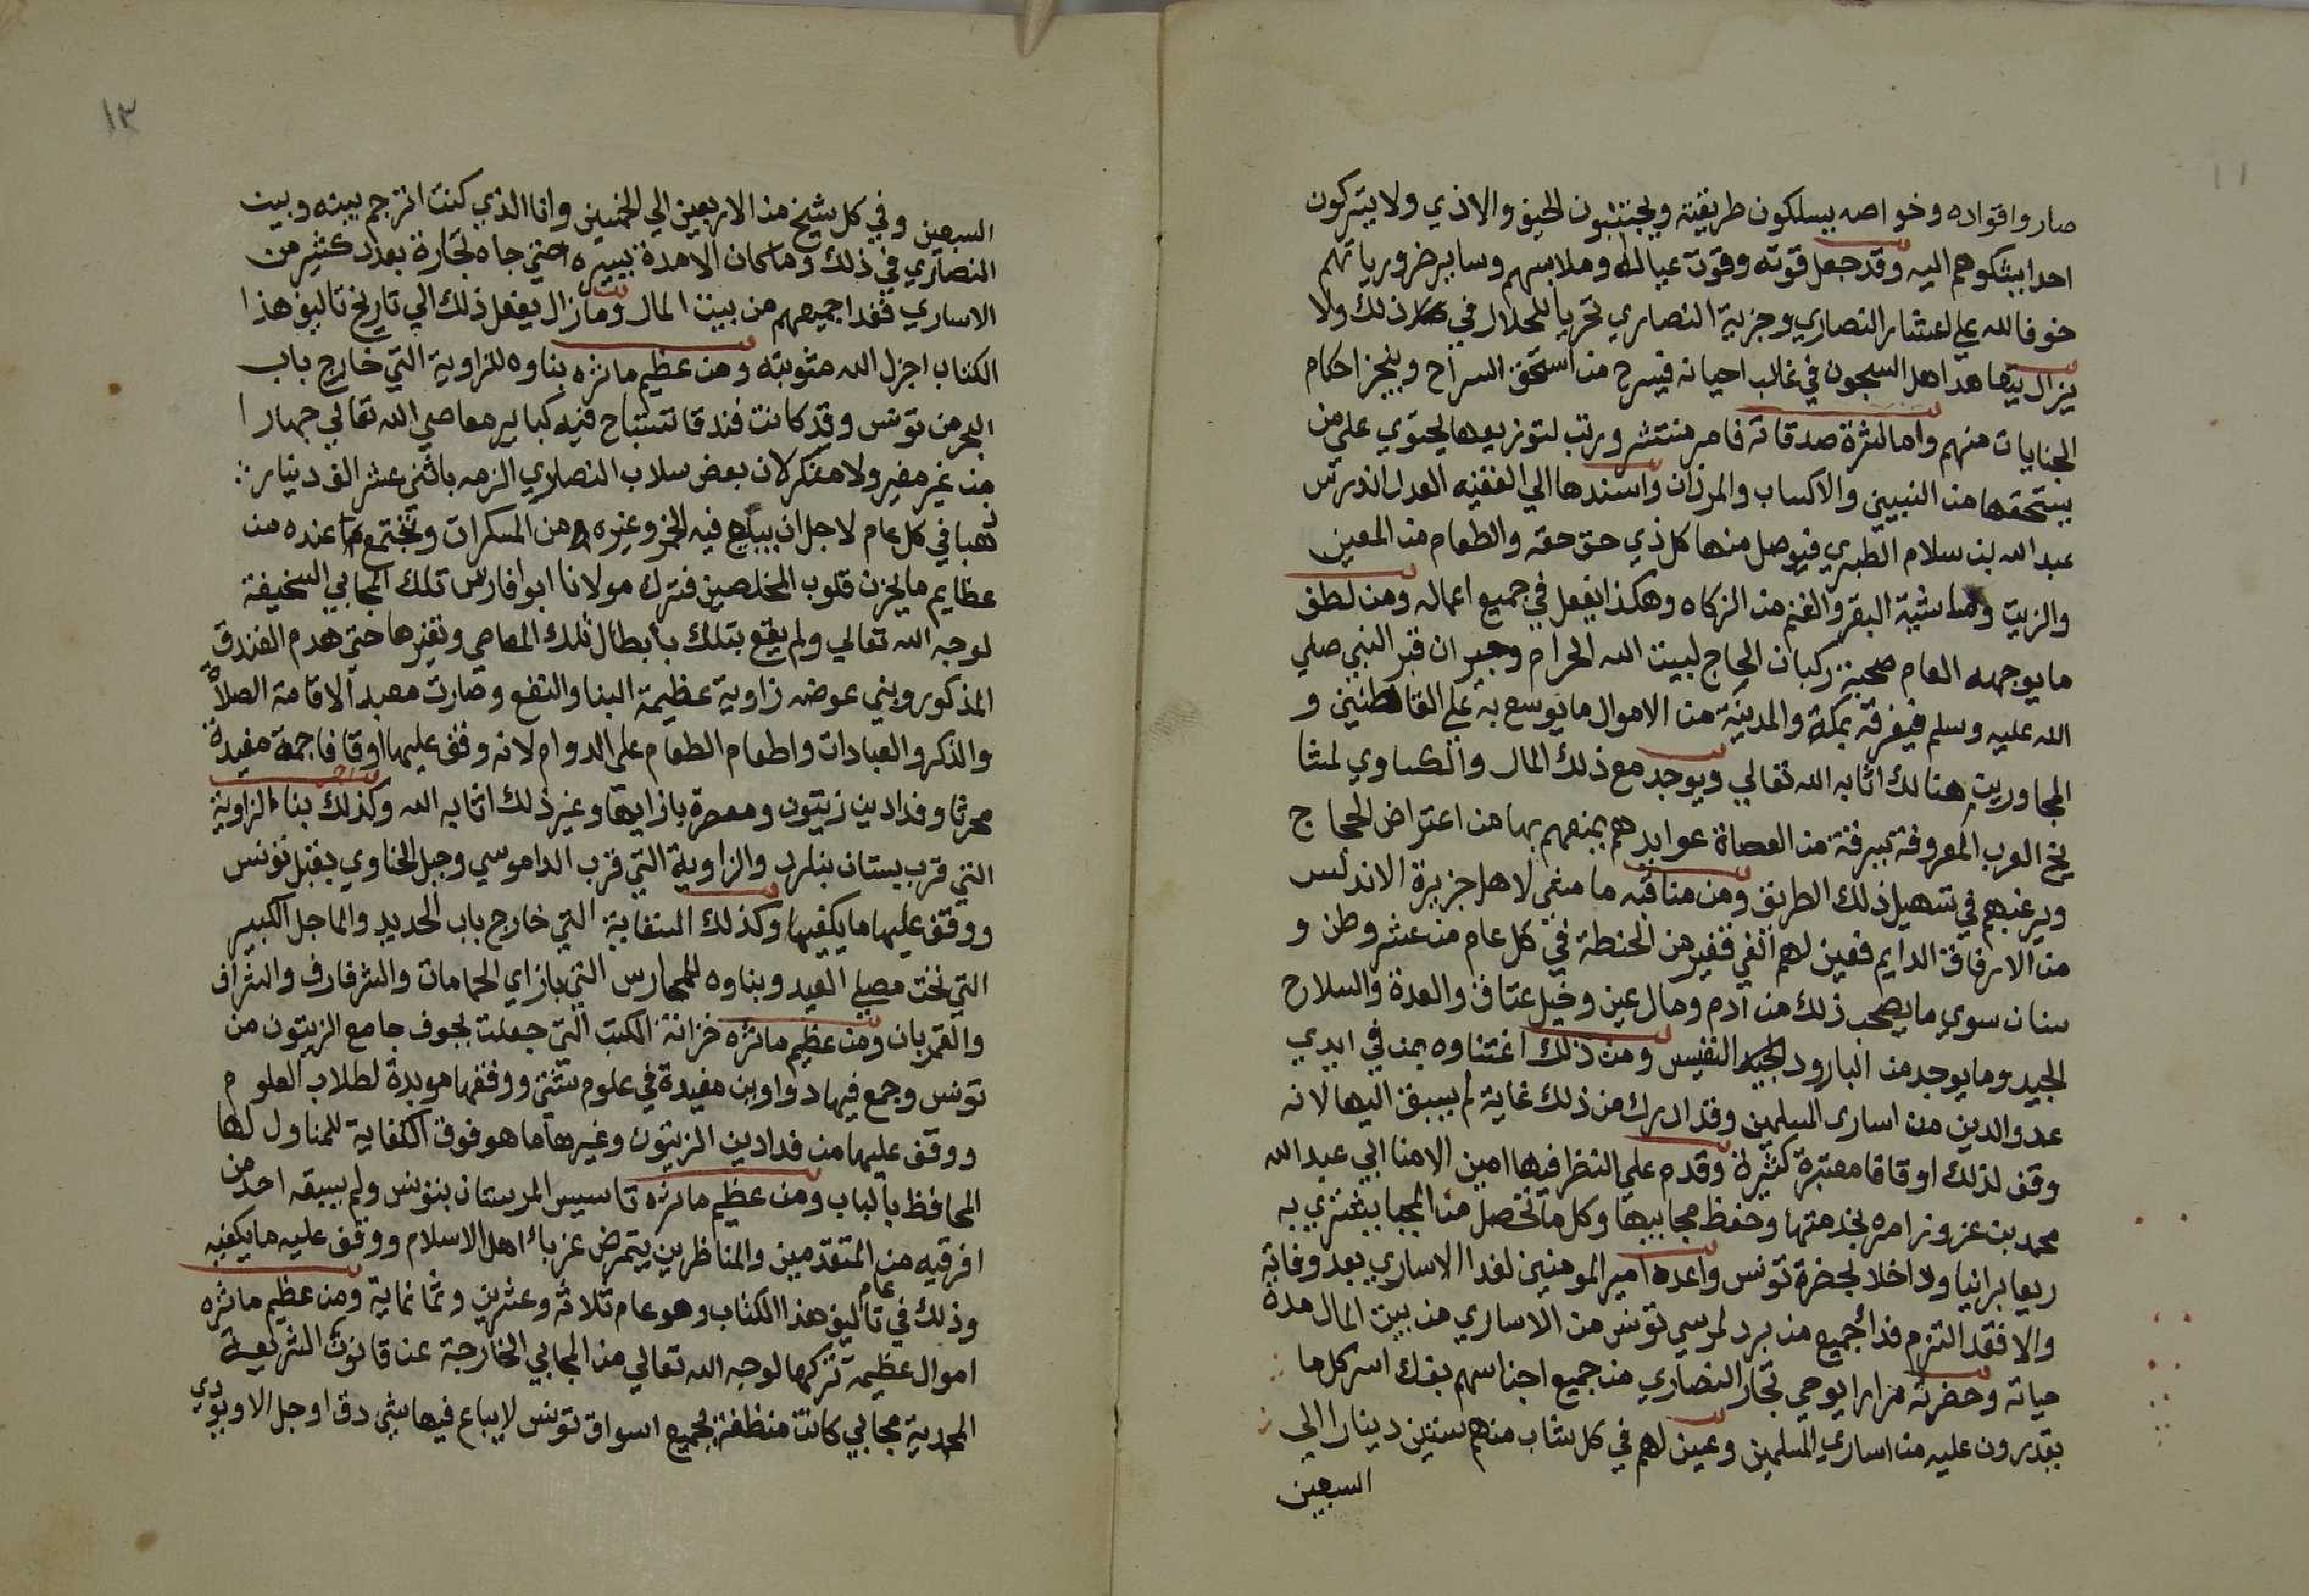 صاروا قواده وخواصه يسلكون طريقته ويجتنبون الحيف والاذي ولا يتركون
احدا يشكوهم اليه وقد جعل قوته وقوت عياله وملابسهم وساير ضرورياتهم
خوفا لله علي اعشار النصاري وجزية النصاري تحريا للحلال في ذلك ولا
يزال يتعاهد اهل السجون في غالب احيانه فيسرح من استحق السراح وينجز احكام
الجنايات منهم واما كثرة صدقاته فامر منتشر ورتب لتوزيعها يحتوي علي من
يستحقها من النبيين والاكساب والمرذان واسندها الي الفقيه العدل اندرس
عبد الله بن سلام الطبري فيوصل منها كل ذي حق حقه والطعام من المعين
والزيت وماشية البقر والغنم من الزكاه وهكذا يفعل في جميع اعماله ومن لطف
ما يوجهه العام صحبة ركبان الحاج لبيت الله الحرام وجيران قبر النبي صلي
الله عليه وسلم فيفرقه بمكة والمدينة من الاموال ما يوسع به علي القاطنين و
المجاورين هنالك اثابه الله تعالي ويوجد مع ذلك المال والكساوي لمشا
يخ العرب المعروفة ببرقة من العصاة عوايدهم يمنعهم بها من اعتراض الحجاج
ويرغبهم في تسهيل ذلك الطريق ومن مناقبه ما منعي لاهل جزيرة الاندلس
من الارفاق الدايم فعين لهم الفي قفيز من الحنطة في كل عام من عشر وطن و
سنان سوي ما يصحب ذلك من آدم ومال عين وخيل عتاق والعدة والسلاح
الجيد وما يوجد من البارود الجيد النفيس ومن ذلك اغتناوه بمن في ايدي
عدو الدين من اساري المسلمين وقد ادرك من ذلك غاية لم يسبق اليها لانه
وقف لذلك اوقاقا معتبرة كثيرة وقدم علي النظر فيها امين الامنا ابي عبد الله
محمد بن عزوز امره بخدمتها وحفظ مجابيها وكل ما تحصل من المجبا يشتري به
ريعا برانيا ولا اخلا بحضرة تونس واعده امير المومنين لفدا الاساري بعد وفاته
والا فقد التزم فدا جميع من يرد لمرسي تونس من الاساري من بيت المال مدة
حياته وحضرته مرارا يوحي تجار النصاري من جميع اجناسهم بفك اسر كل ما
يقدرون عليه من اساري المسلمين وعين لهم في كل شاب منهم ستين دينارا الي
السبعين
١٣
السبعين وفي كل شيخ من الاربعين الي الخمسين وانا الذي كنت اترجم بينه وبين
النصاري في ذلك وما كان الا مدة يسيره حتي جاه تجارة بعدد كثير من
الاساري ففدا جميعهم من بيت المال وما زال يفعل ذلك الي تاريخ تاليف هذا
الكتاب اجزل الله مثوبته ومن عظيم ماثره بناوه للزاوية التي خارج باب
البحر من تونس وقد كانت فندقا تستباح فيه كباير معاصي الله تعالي جهارا
من غير مغير ولا منكر لان بعض سلاب النصاري الزمه باثني عشر الف دينار
ذهبا في كل عام لاجل ان يبيع فيه الخمر وغيره من المسكرات وتجتمع عنده من
عظايم ما يحزن قلوب المخلصين فترك مولانا ابو فارس تلك المجابي السخيفة
لوجه الله تعالي ولم يقنع بتلك بابطال تلك المعاصي وتغيرها حتي هدم الفندق
المذكور وبني عوضه زاوية عظيمة البنا والنفع وصارت معبدا لاقامة الصلاة
والذكر والعبادات واطعام الطعام علي الدوام لانه وقف عليها اوقافا جمة مفيدة
محرثا وفدادين زيتون ومعصرة بازايها وغير ذلك اثابه الله وكذلك بناء الزاوية
التي قرب بستان بنارد والزاوية التي قرب الداموسي وجبل الخناوي بقبل تونس
ووقف عليها ما يكفيها وكذلك السقاية التي خارج باب الحديد والماجل الكبير
التي تحت مصلي العيد وبناوه للمحارس التي بازاي الحمامات والشرفارف والشراف
والقمربان ومن عظيم ماثره خزانة الكتب التي جعلت بجوف جامع الزيتون من
تونس وجمع فيها دواوين مفيدة في علوم شتي ووقفها موبدة لطلاب العلوم
ووقف عليها من فدادين الزيتون وغيرها ما هو فوق الكفاية للمناول لها
المحافظ بالباب ومن عظيم ماثره تاسيس المرستان بتونس ولم يسبقه احد من
افرقيه من المتقدمين والمناظرين يتمرض غرباء اهل الاسلام ووقف عليه ما يكفيه
وذلك في عام تاليف هذا الكتاب وهو عام ثلاثة وعشرين وثمانماية ومن عظيم ماثره
اموال عظيمة تركها لوجه الله تعالي من المجابي الخارجة عن قانون الشريعة
المحمدية مجابي كانت منظفة بجميع اسواق تونس لا يباع فيها شي دق او جل الا ويودي